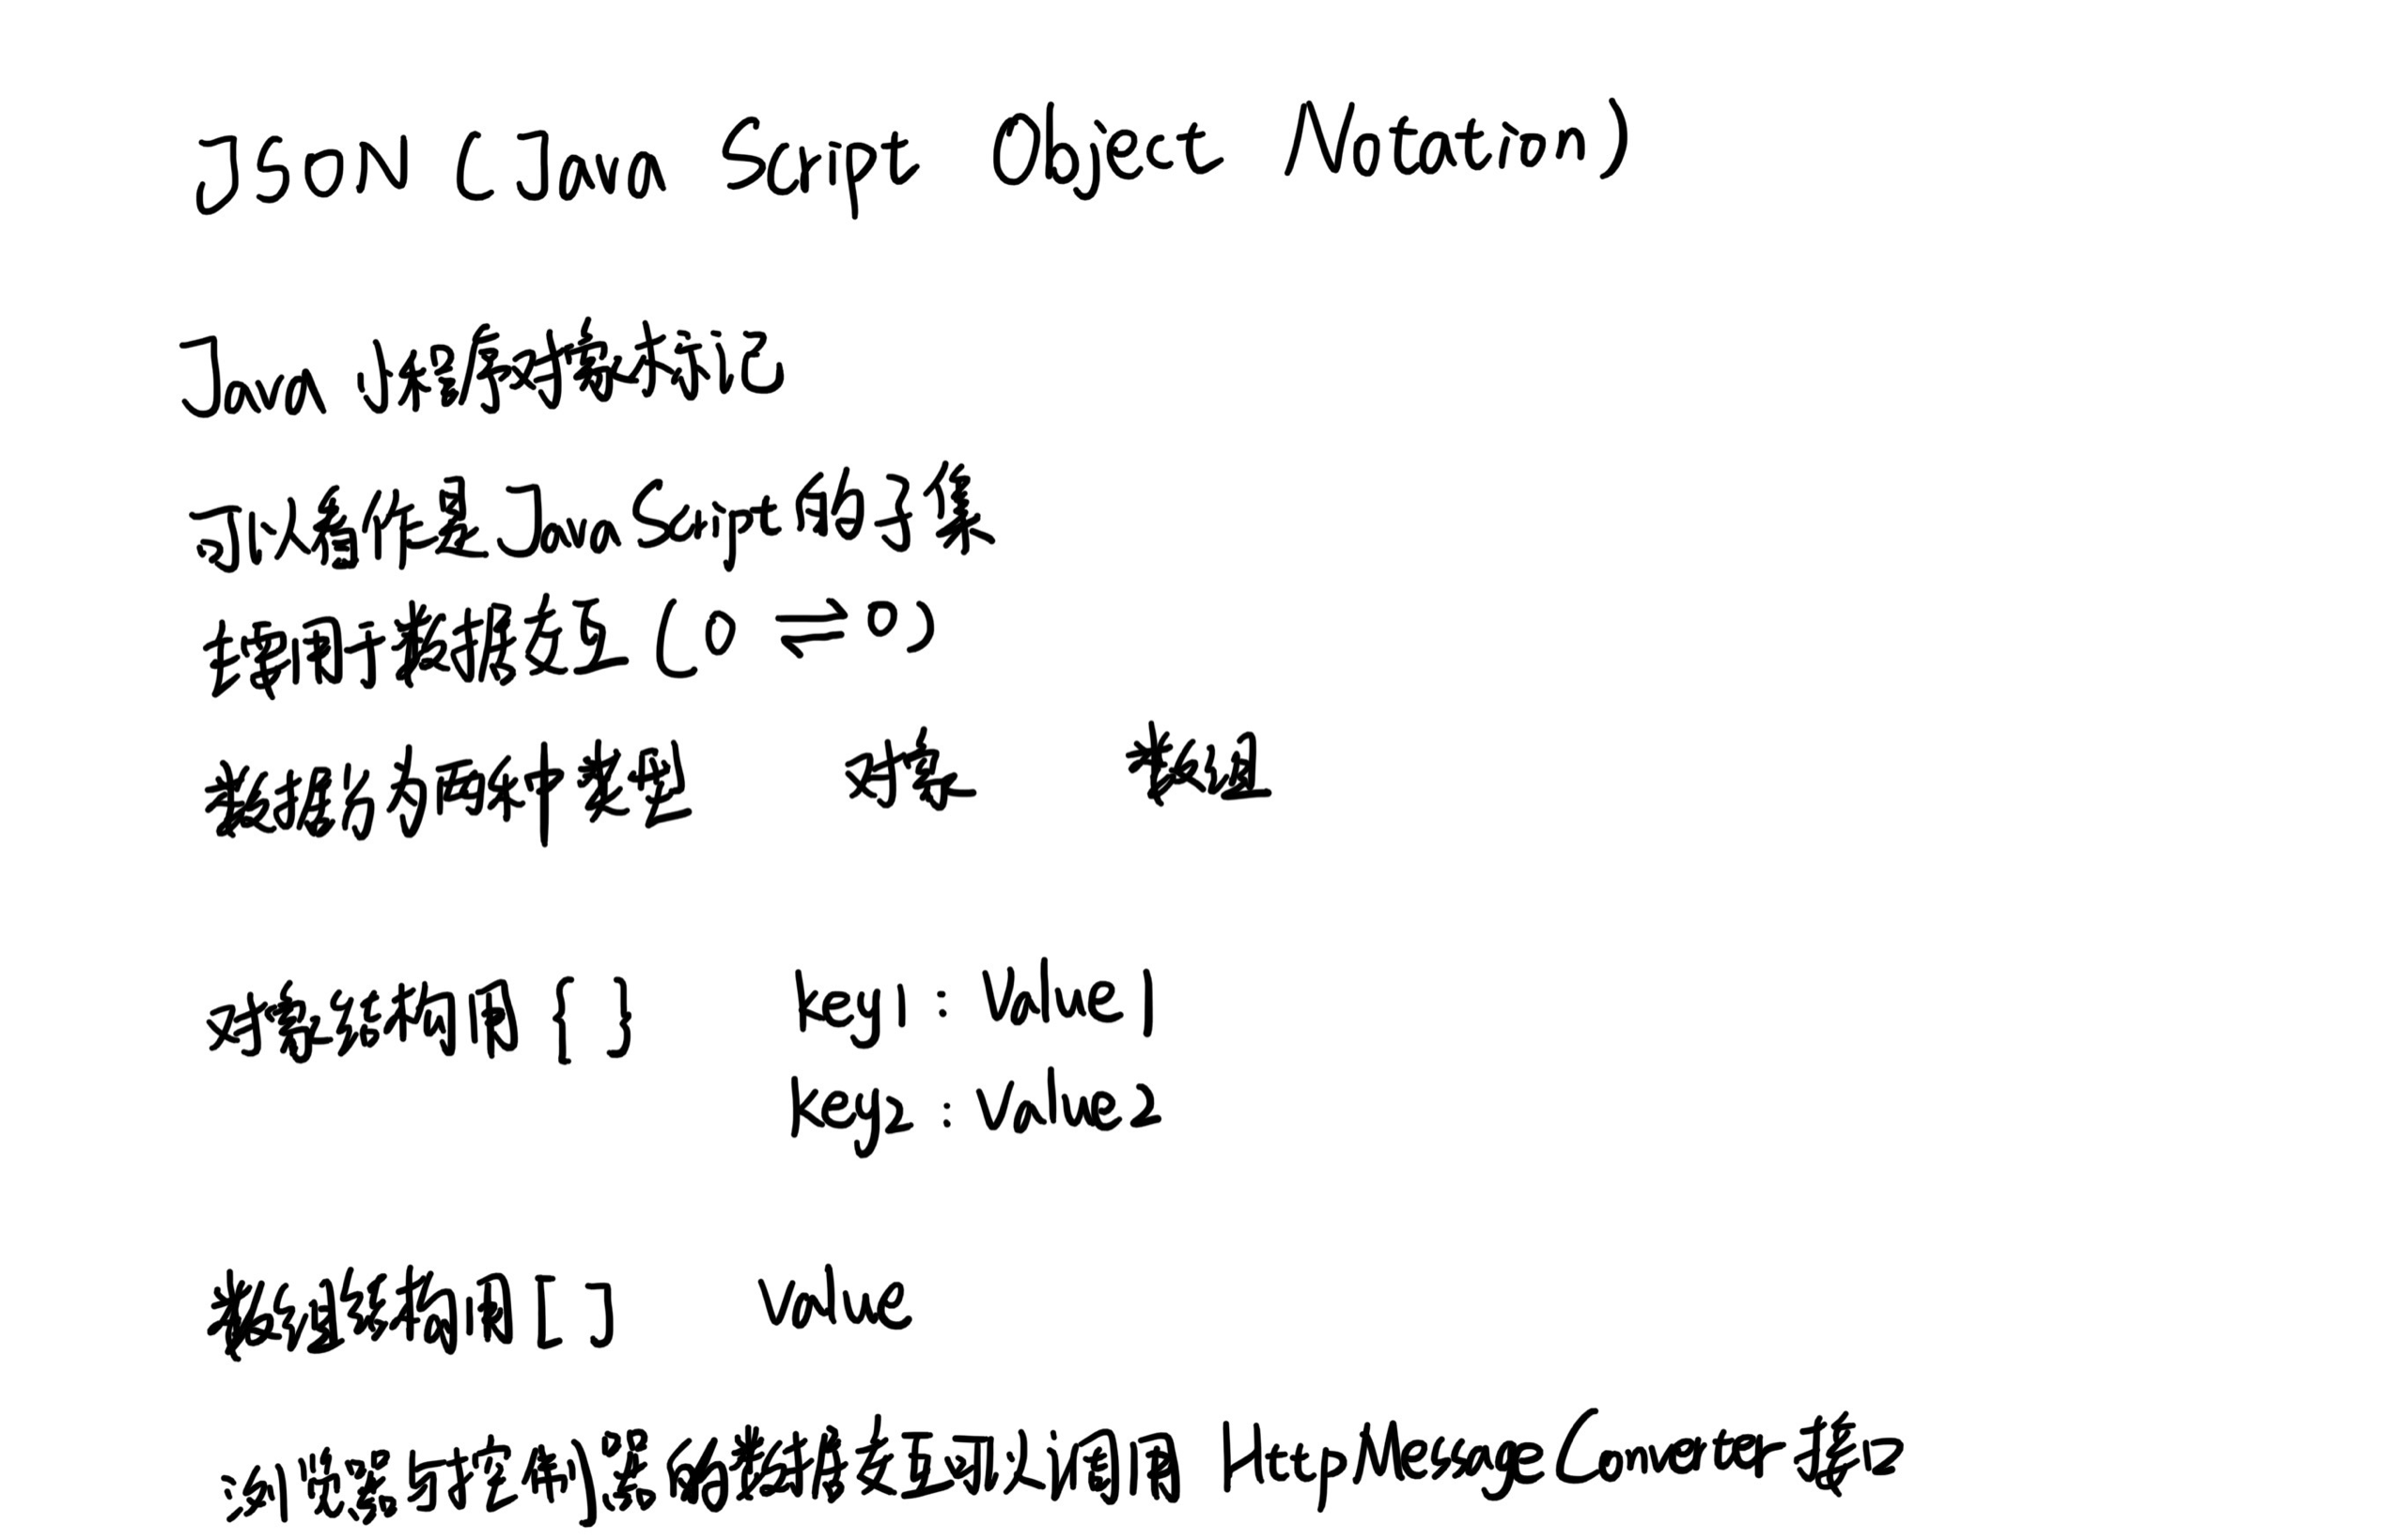 JSON (Java Script Object Notation)
Java 小程序对象标记
可以看作是JavaScript的子集
主要用于数据交互(0 ⇌ 0)
数据分为两种类型 对象 数组
对象结构用{ } key1 : Value1
key2 : Value2
数组结构用[ ] Value
浏览器与控制器的数据交互可以调用 HttpMessageConverter接口